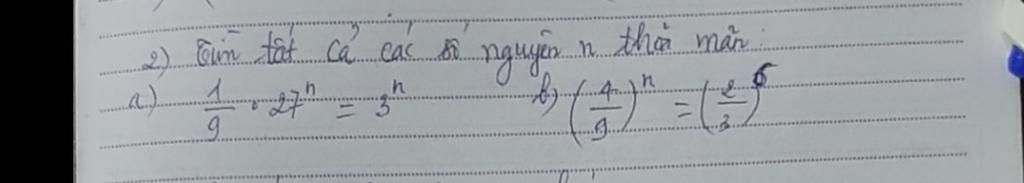 2) Tìm tất cả các số nguyên n thoả mãn:
a) 1/9 · 27^n = 3^n b) (4/9)^n = (2/3)^6